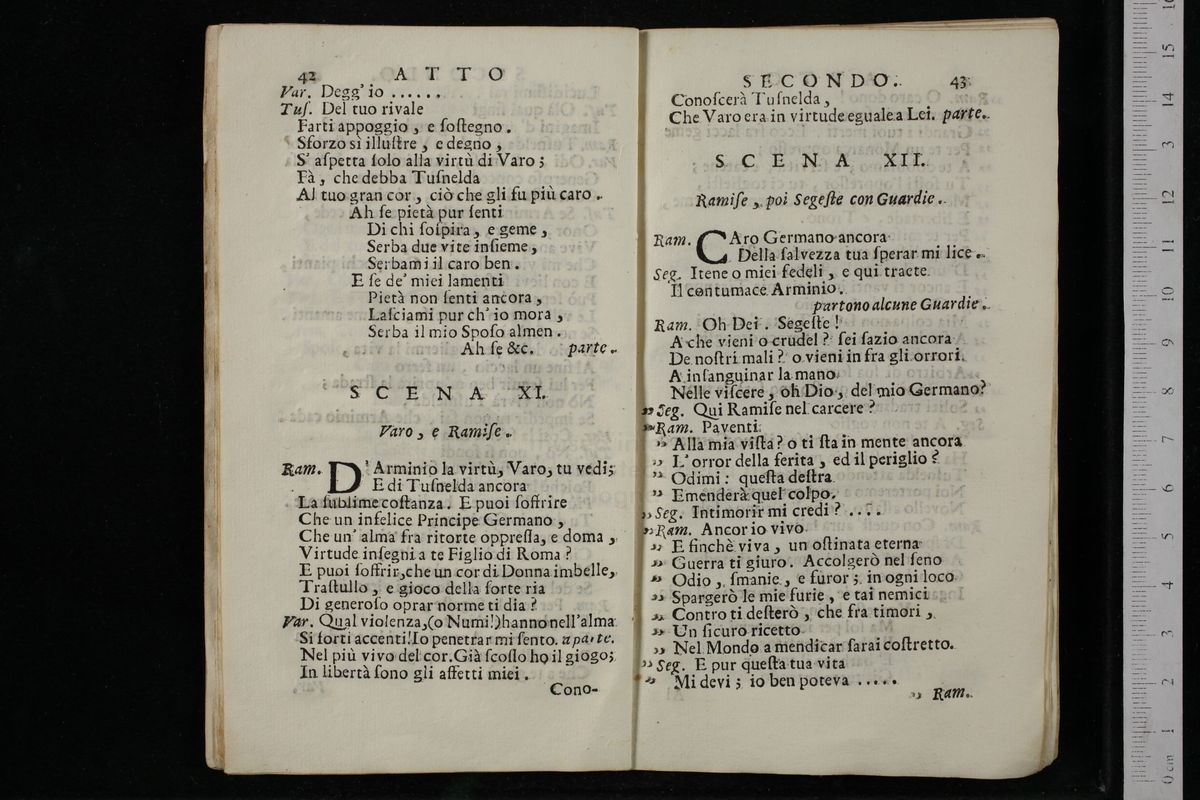 42 ATTO
Var. Degg' io ......
Tuſ. Del tuo rivale
Farti appoggio, e ſoſtegno.
Sforzo sì illuſtre, e degno,
S' aſpetta ſolo alla virtù di Varo;
Fà, che debba Tuſnelda
Al tuo gran cor, ciò che gli fu più caro.
Ah ſe pietà pur ſenti
Di chi ſoſpira, e geme,
Serba due vite inſieme,
Serbami il caro ben.
E ſe de' miei lamenti
Pietà non ſenti ancora,
Laſciami pur ch' io mora,
Serba il mio Spoſo almen.
Ah ſe &c. parte.
SCENA XI.
Varo, e Ramiſe.
Ram. D'Arminio la virtù, Varo, tu vedi;
E di Tuſnelda ancora
La ſublime coſtanza. E puoi ſoffrire
Che un infelice Principe Germano,
Che un' alma fra ritorte oppreſſa, e doma,
Virtude inſegni a te Figlio di Roma?
E puoi ſoffrir, che un cor di Donna imbelle,
Traſtullo, e gioco della ſorte ria
Di generoſo oprar norme ti dia?
Var. Qual violenza, (o Numi!) hanno nell'alma
Sì forti accenti! Io penetrar mi ſento. a parte.
Nel più vivo del cor. Già ſcoſſo ho il giogo;
In libertà ſono gli affetti miei.
Cono-
SECONDO. 43
Conoſcerà Tuſnelda,
Che Varo era in virtude eguale a Lei. parte.
SCENA XII.
Ramiſe, poi Segeſte con Guardie.
Ram. CAro Germano ancora
Della ſalvezza tua ſperar mi lice.
Seg. Itene o miei fedeli, e qui traete
Il contumace Arminio.
partono alcune Guardie.
Ram. Oh Dei. Segeſte!
A che vieni o crudel? ſei ſazio ancora
De noſtri mali? o vieni in fra gli orrori
A inſanguinar la mano
Nelle viſcere, oh Dio, del mio Germano?
„ Seg. Qui Ramiſe nel carcere?
„ Ram. Paventi
„ Alla mia viſta? o ti ſta in mente ancora
„ L'orror della ferita, ed il periglio?
„ Odimi: queſta deſtra
„ Emenderà quel colpo.
„ Seg. Intimorir mi credi? ....
„ Ram. Ancor io vivo
„ E finchè viva, un oſtinata eterna
„ Guerra ti giuro. Accolgerò nel ſeno
„ Odio, ſmanie, e furor; in ogni loco
„ Spargerò le mie furie, e tai nemici
„ Contro ti deſterò, che fra timori,
„ Un ſicuro ricetto
„ Nel Mondo a mendicar ſarai coſtretto.
„ Seg. E pur queſta tua vita
„ Mi devi; io ben poteva .....
„ Ram.
0 cm 1 2 3 4 5 6 7 8 9 10 11 12 3 14 15 16